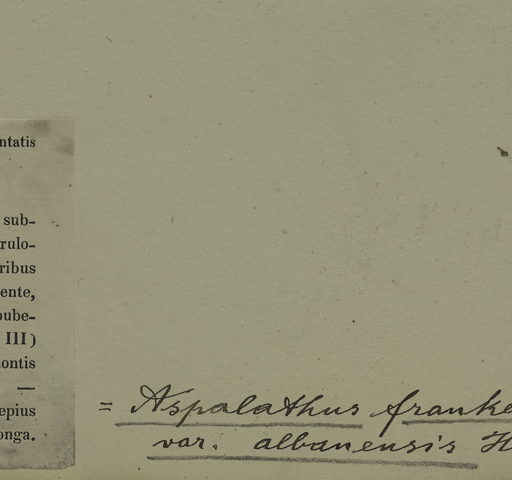 ntatis
sub-
rulo-
ribus
ente,
pube-
III)
ontis
—
epius
onga.
= Aspalathus franke
var. albanensis H